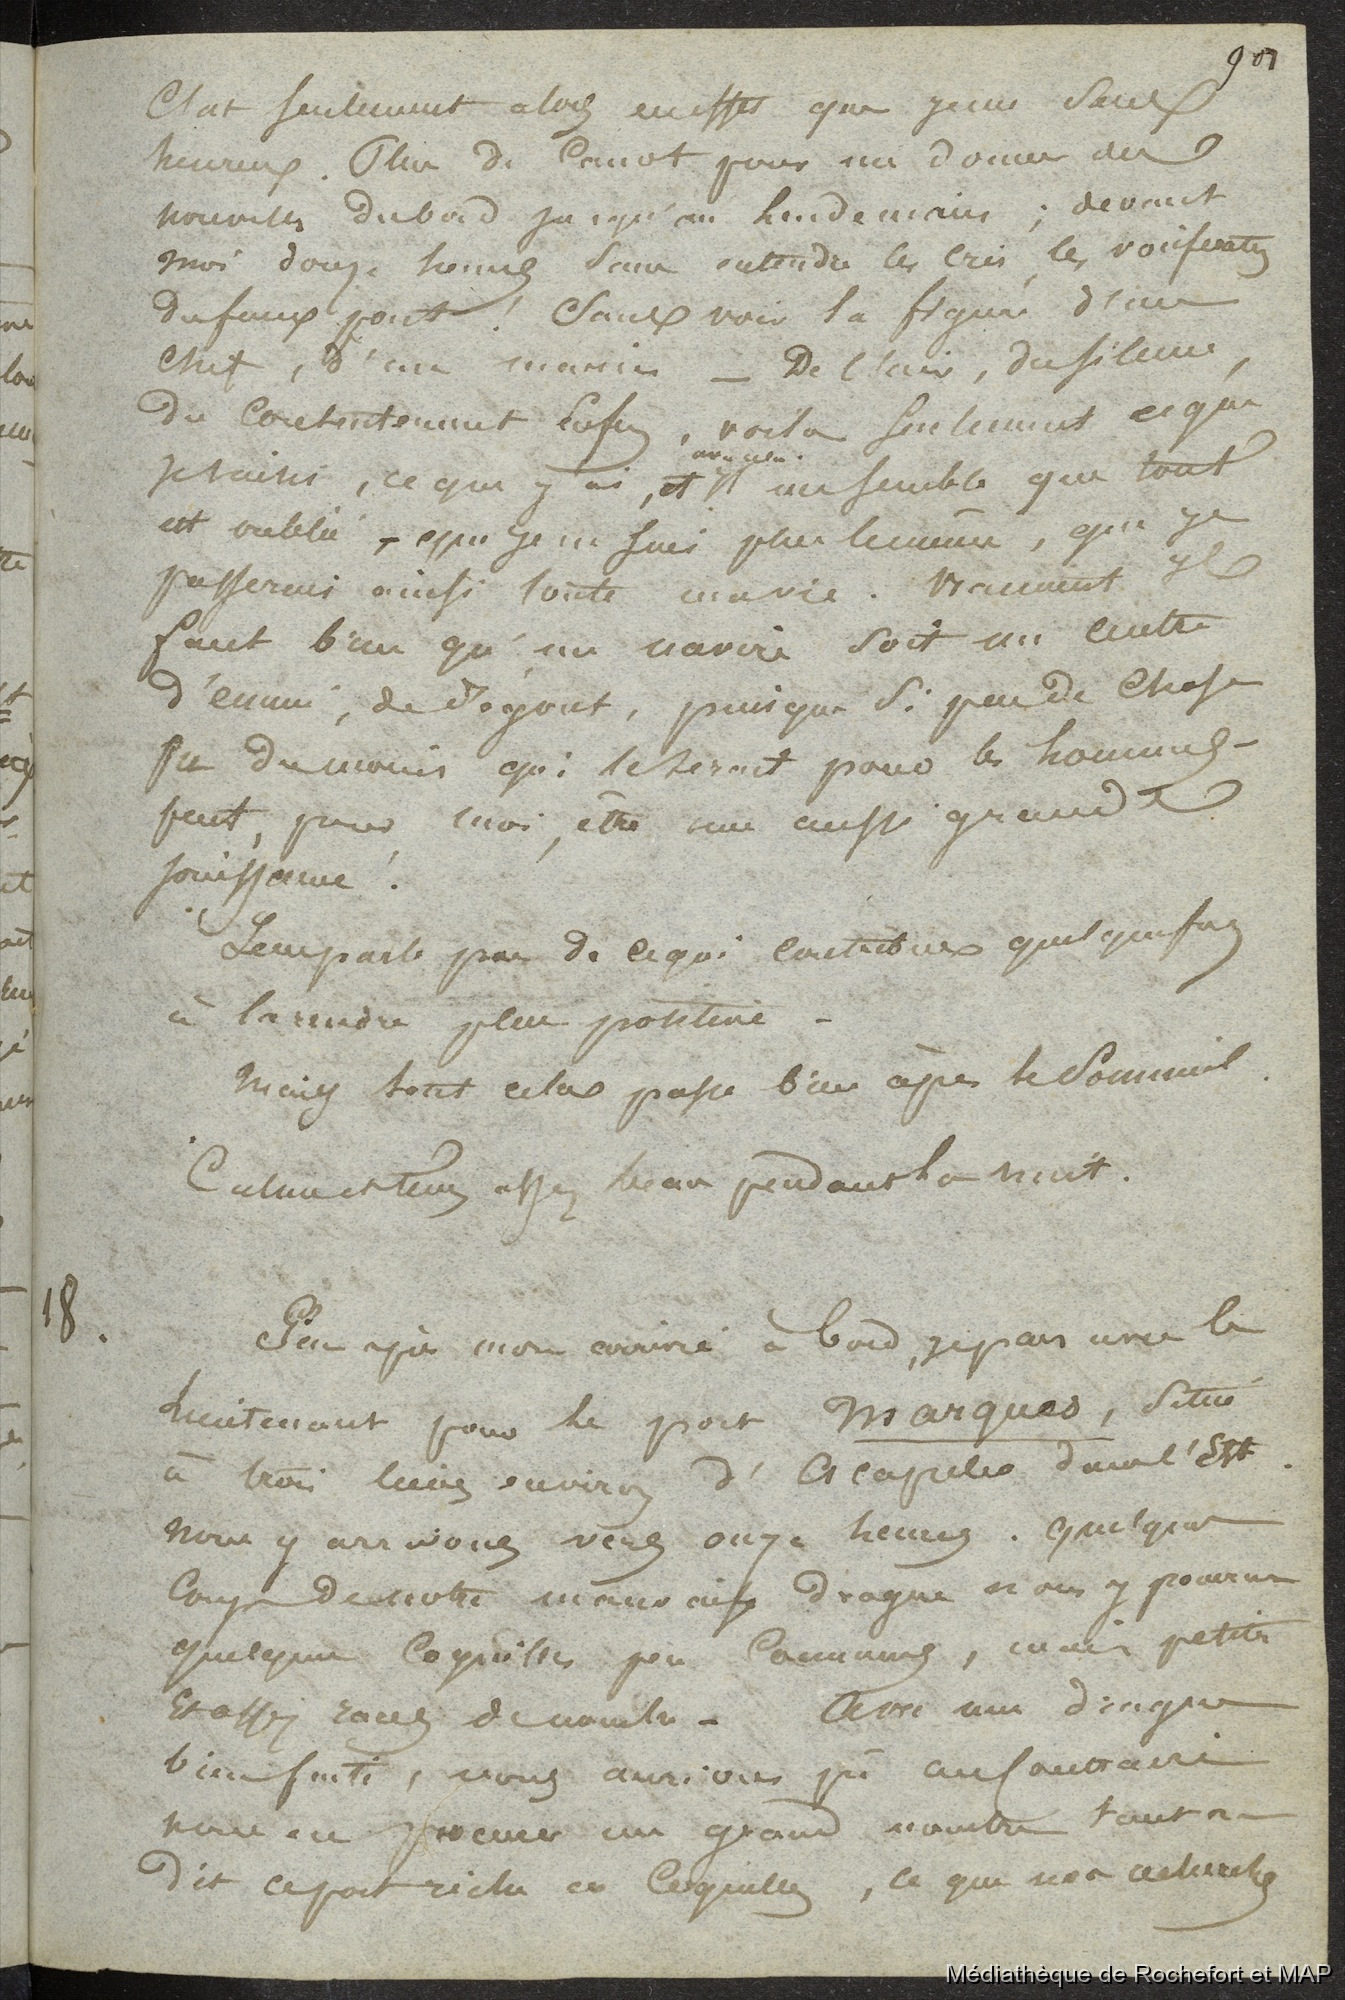 C'est seulement alors en effet que je me sens
heureux. Plus de Canot pour me donner des
nouvelles du bord jusqu'au lendemain ; devant
moi douze heures sans entendre les cris, les vociférations
du faux pont ! Sans voir la figure d'un
chef, d'un marin - De l'air, du silence,
du contentement enfin, voila seulement ce que
je desire, ce que j'ai, et il me semble que tout
est oublié, que je ne suis plus le même, que je
passerais ainsi toute ma vie. Vraiment il
faut bien qu'un navire soit un centre
d'ennui, de dégout, puisque si peu de chose
du moins qui le seroit pour les hommes -
peut, pour moi, être une aussi grande
jouissance !
Je ne parle pas de ce qui contribue quelquefois
à la rendre plus positive -
Mais tout cela passe bien après le sommeil.
Calme et tems assez beau pendant la nuit.
18.
Peu après mon arrivée à bord, je pars avec le
lieutenant pour le port Marques, situé
à trois lieues environ d'Acapulco dans l'Est.
nous y arrivons vers onze heures. quelques
coups de notre mauvaise drague nous y
quelques coquilles peu communes, mais petites
et assez rares de nombre - Avec une drague
bien faite, nous aurions pu au contraire
nous en procurer un grand nombre tant on
dit ce port riche en coquilles, ce que nos recherches